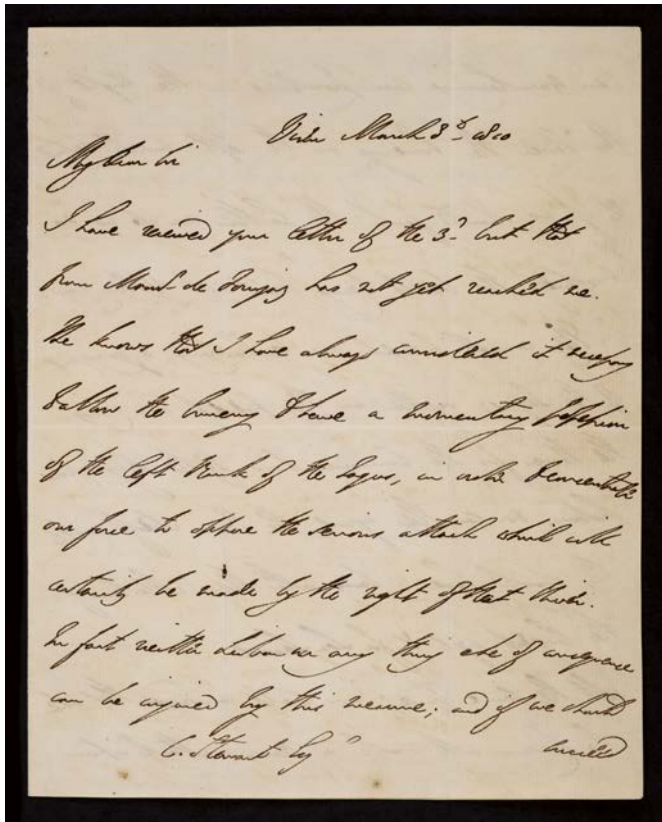 Viseu March 8th 1810
My Dear Sir
I have received your letter of the 3d but that
from Mons.r de Forjaz has not yet reached me.
He knows that I have always considered it necessary
to allow the Enemy to have a momentary possession
of the left Bank of the Tagus, in order to concentrate
our force to oppose the serious attack which will
certainly be made by the right of that River.
In fact neither Lisbon or any thing else of consequence
can be injured by this measure; and if we should
C. Stuart Esqr succeed